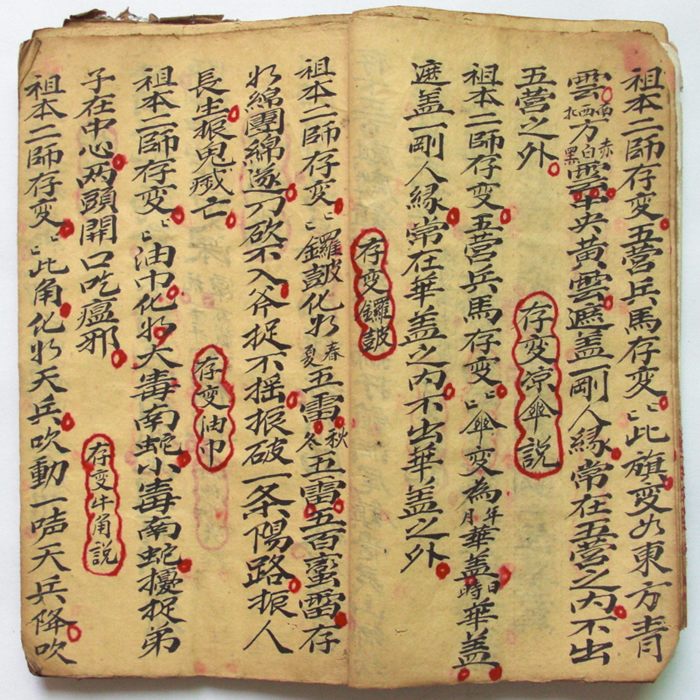 祖本二師存变五营兵馬存变〻此旗变如東方青
雲南西北方赤白黑雲中央黄雲遮盖一剛人緣常在五营之内不出
五营之外
存变凉傘説
祖本二師存变五营兵馬存变〻傘变為年月華盖日時華盖
遮盖一剛人緣常在華盖之内不出華盖之外
存变鑼鼓
祖本二師存变〻鑼鼓化如春夏五雷秋冬五雷五百蛮雷存
如綿團綿遂刀砍不入斧捉不摇振破一条陽路振人
長生振鬼滅亡
存变油巾
祖本二師存变〻油巾化如大毒南蛇小毒南蛇擾捉弟
子在中心两頭開口吃瘟邪
存变牛角説
祖本二師存变〻此角化如天兵吹動一声天兵降吹